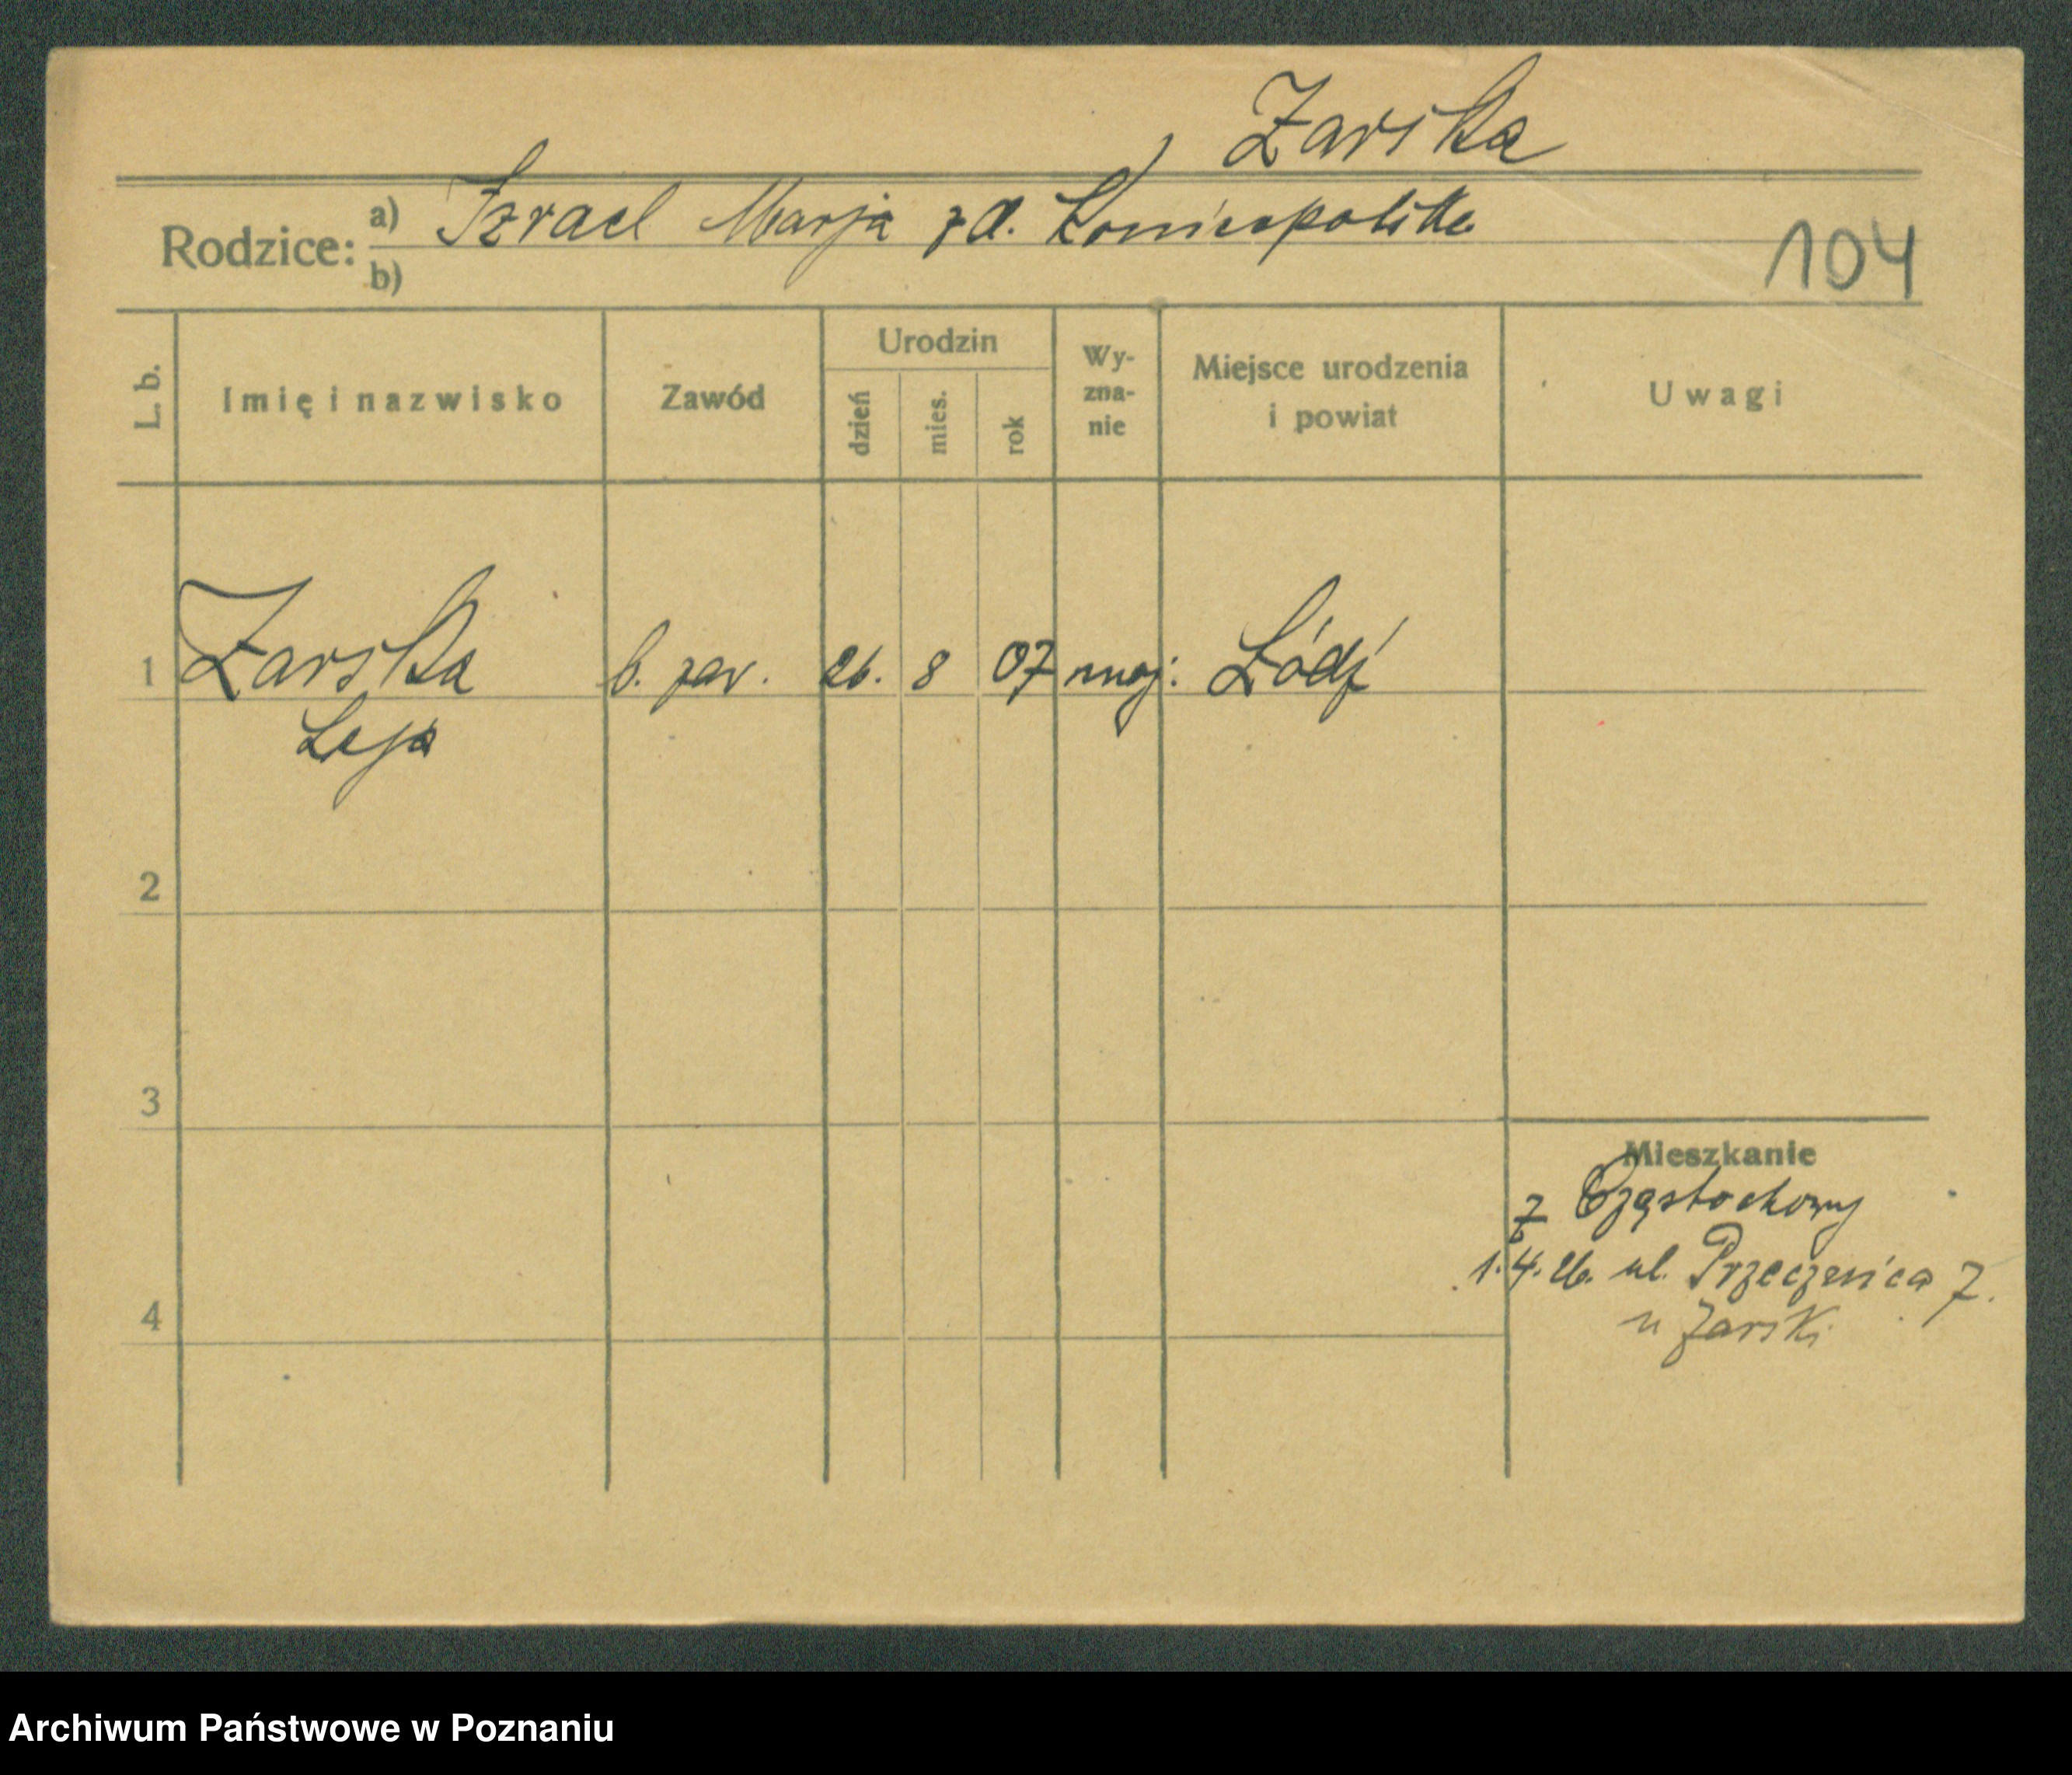 Zarska
Rodzice: a) Izrael Marja z d. Koniecpolska
b)
104
L. b. Imię i nazwisko Zawód Urodzin dzień mies. rok Wy-zna-nie Miejsce urodzenia i powiat Uwagi
1 Zarska b. zaw. 26. 8 07 moj: Łódź
Leja
2
3
Mieszkanie
z Częstochowy
1.4.26. ul. Przeczenica 7.
4
u Zarski
Archiwum Państwowe w Poznaniu